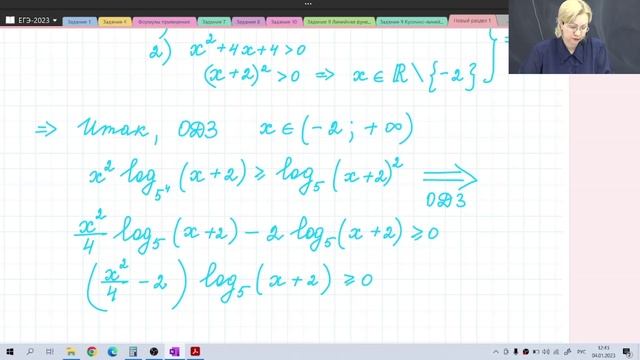 ЕГЭ-2023
Задание 1 Задание 4 Формулы приведения Задание 7 Задание 8 Задание 10 Задание 9 Линейная функ... Задание 9 Кусочно-линей... Новый раздел 1
2) x² + 4x + 4 > 0
(x + 2)² > 0 ⇒ x ∈ ℝ \ {-2}
⇒ Итак, ОДЗ x ∈ (-2; +∞)
x² log_{5⁴} (x + 2) ≥ log₅ (x + 2)² ⟹
ОДЗ
x²/4 log₅ (x + 2) - 2 log₅ (x + 2) ≥ 0
(x²/4 - 2) log₅ (x + 2) ≥ 0
РУС
12:43
04.01.2023